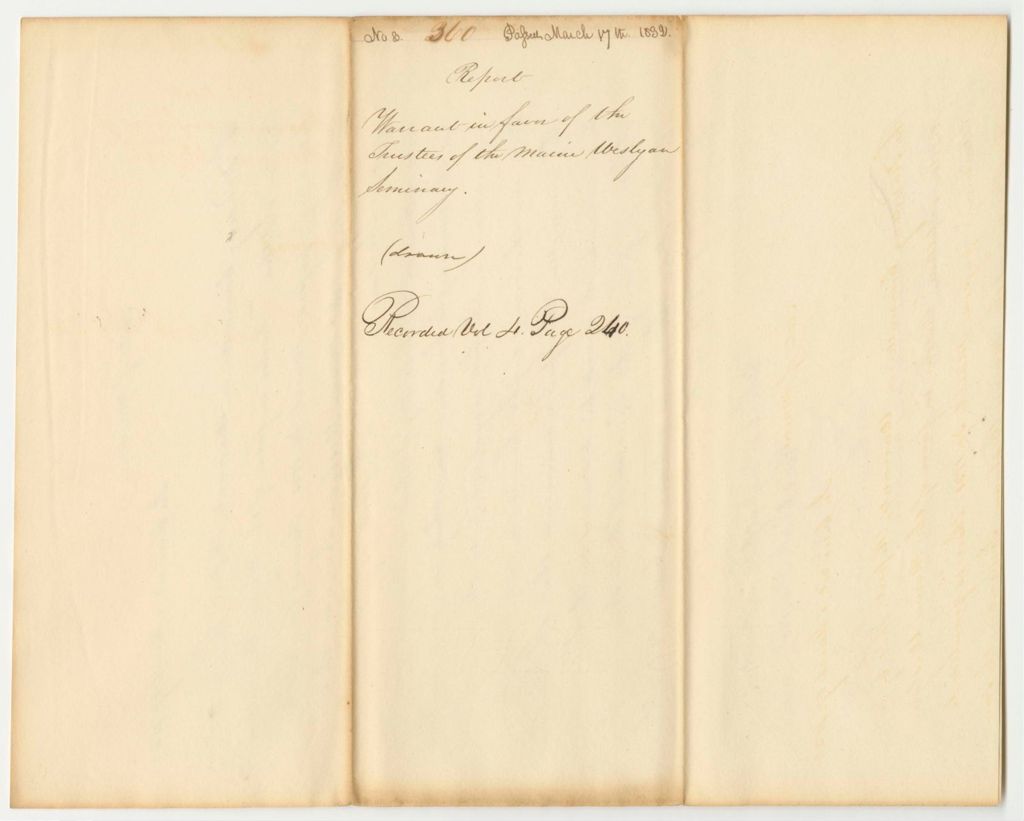 No 8. 360 Passed March 17th. 1832.
Report
Warrant in favor of the
Trustees of the Maine Weslyan
Seminary.
(drawn)
Recorded Vol 4. Page 240.